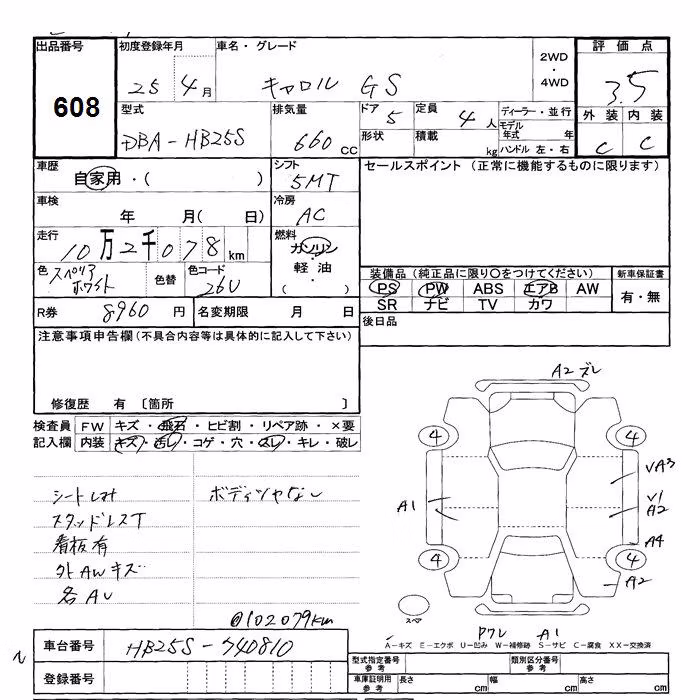 出品番号
608
初度登録年月
25 4月
車名・グレード
キャロル GS
2WD
・
4WD
評価点
3.5
外装 内装
C C
型式
DBA-HB25S
排気量
660cc
ドア 5
形状
定員 4人
積載 kg
ディーラー・並行
モデル年式 年
ハンドル 左・右
車歴
自家用・( )
シフト
5MT
セールスポイント (正常に機能するものに限ります)
車検
年 月( 日)
冷房
AC
走行
10万2千078km
燃料
ガソリン
・
軽油
・
( )
色 スペリアホワイト
色替
色コード
26U
装備品 (純正品に限り〇をつけてください)
PS PW ABS エアB AW
SR ナビ TV カワ
新車保証書
有・無
R券 8960円
名変期限 月 日
後日品
注意事項申告欄(不具合内容等は具体的に記入して下さい)
修復歴 有 〔箇所 〕
検査員記入欄
FW キズ・飛石・ヒビ割・リペア跡・×要
内装 キズ・汚レ・コゲ・穴・スレ・キレ・破レ
ボディツヤなし
スタッドレスT
看板有
外AWキズ
各AU
@102079km
A2 ズレ
4
4
4
4
A1
VA3
V1
A2
A4
A2
スペア
A1
A-キズ E-エクボ U-凹み W-補修跡 S-サビ C-腐食 XX-交換済
車台番号
HB25S-740810
登録番号
型式指定番号
参考
類別区分番号
参考
車庫証明用
参考
長さ cm
幅 cm
高さ cm